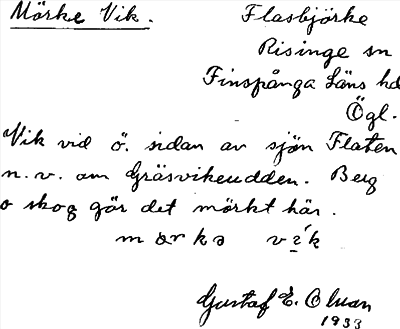 Mörke Vik. Flasbjörke
Risinge sn
Finspånga Läns hd
Ögl.
Vik vid ö. sidan av sjön Flaten
n.v. om Gräsvikeudden. Berg
o skog gör det mörkt här.
mörkə vik
Gustaf E. Olsson
1933